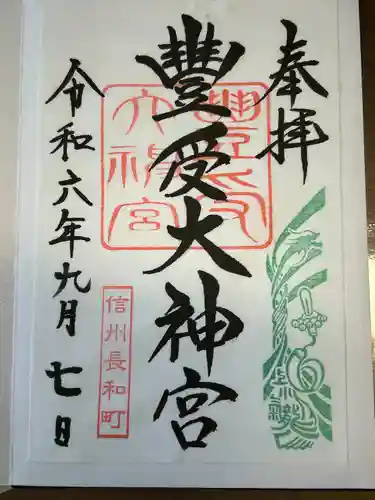 奉拝
豐受大神宮
令和六年九月七日
豐受大神宮
信州長和町